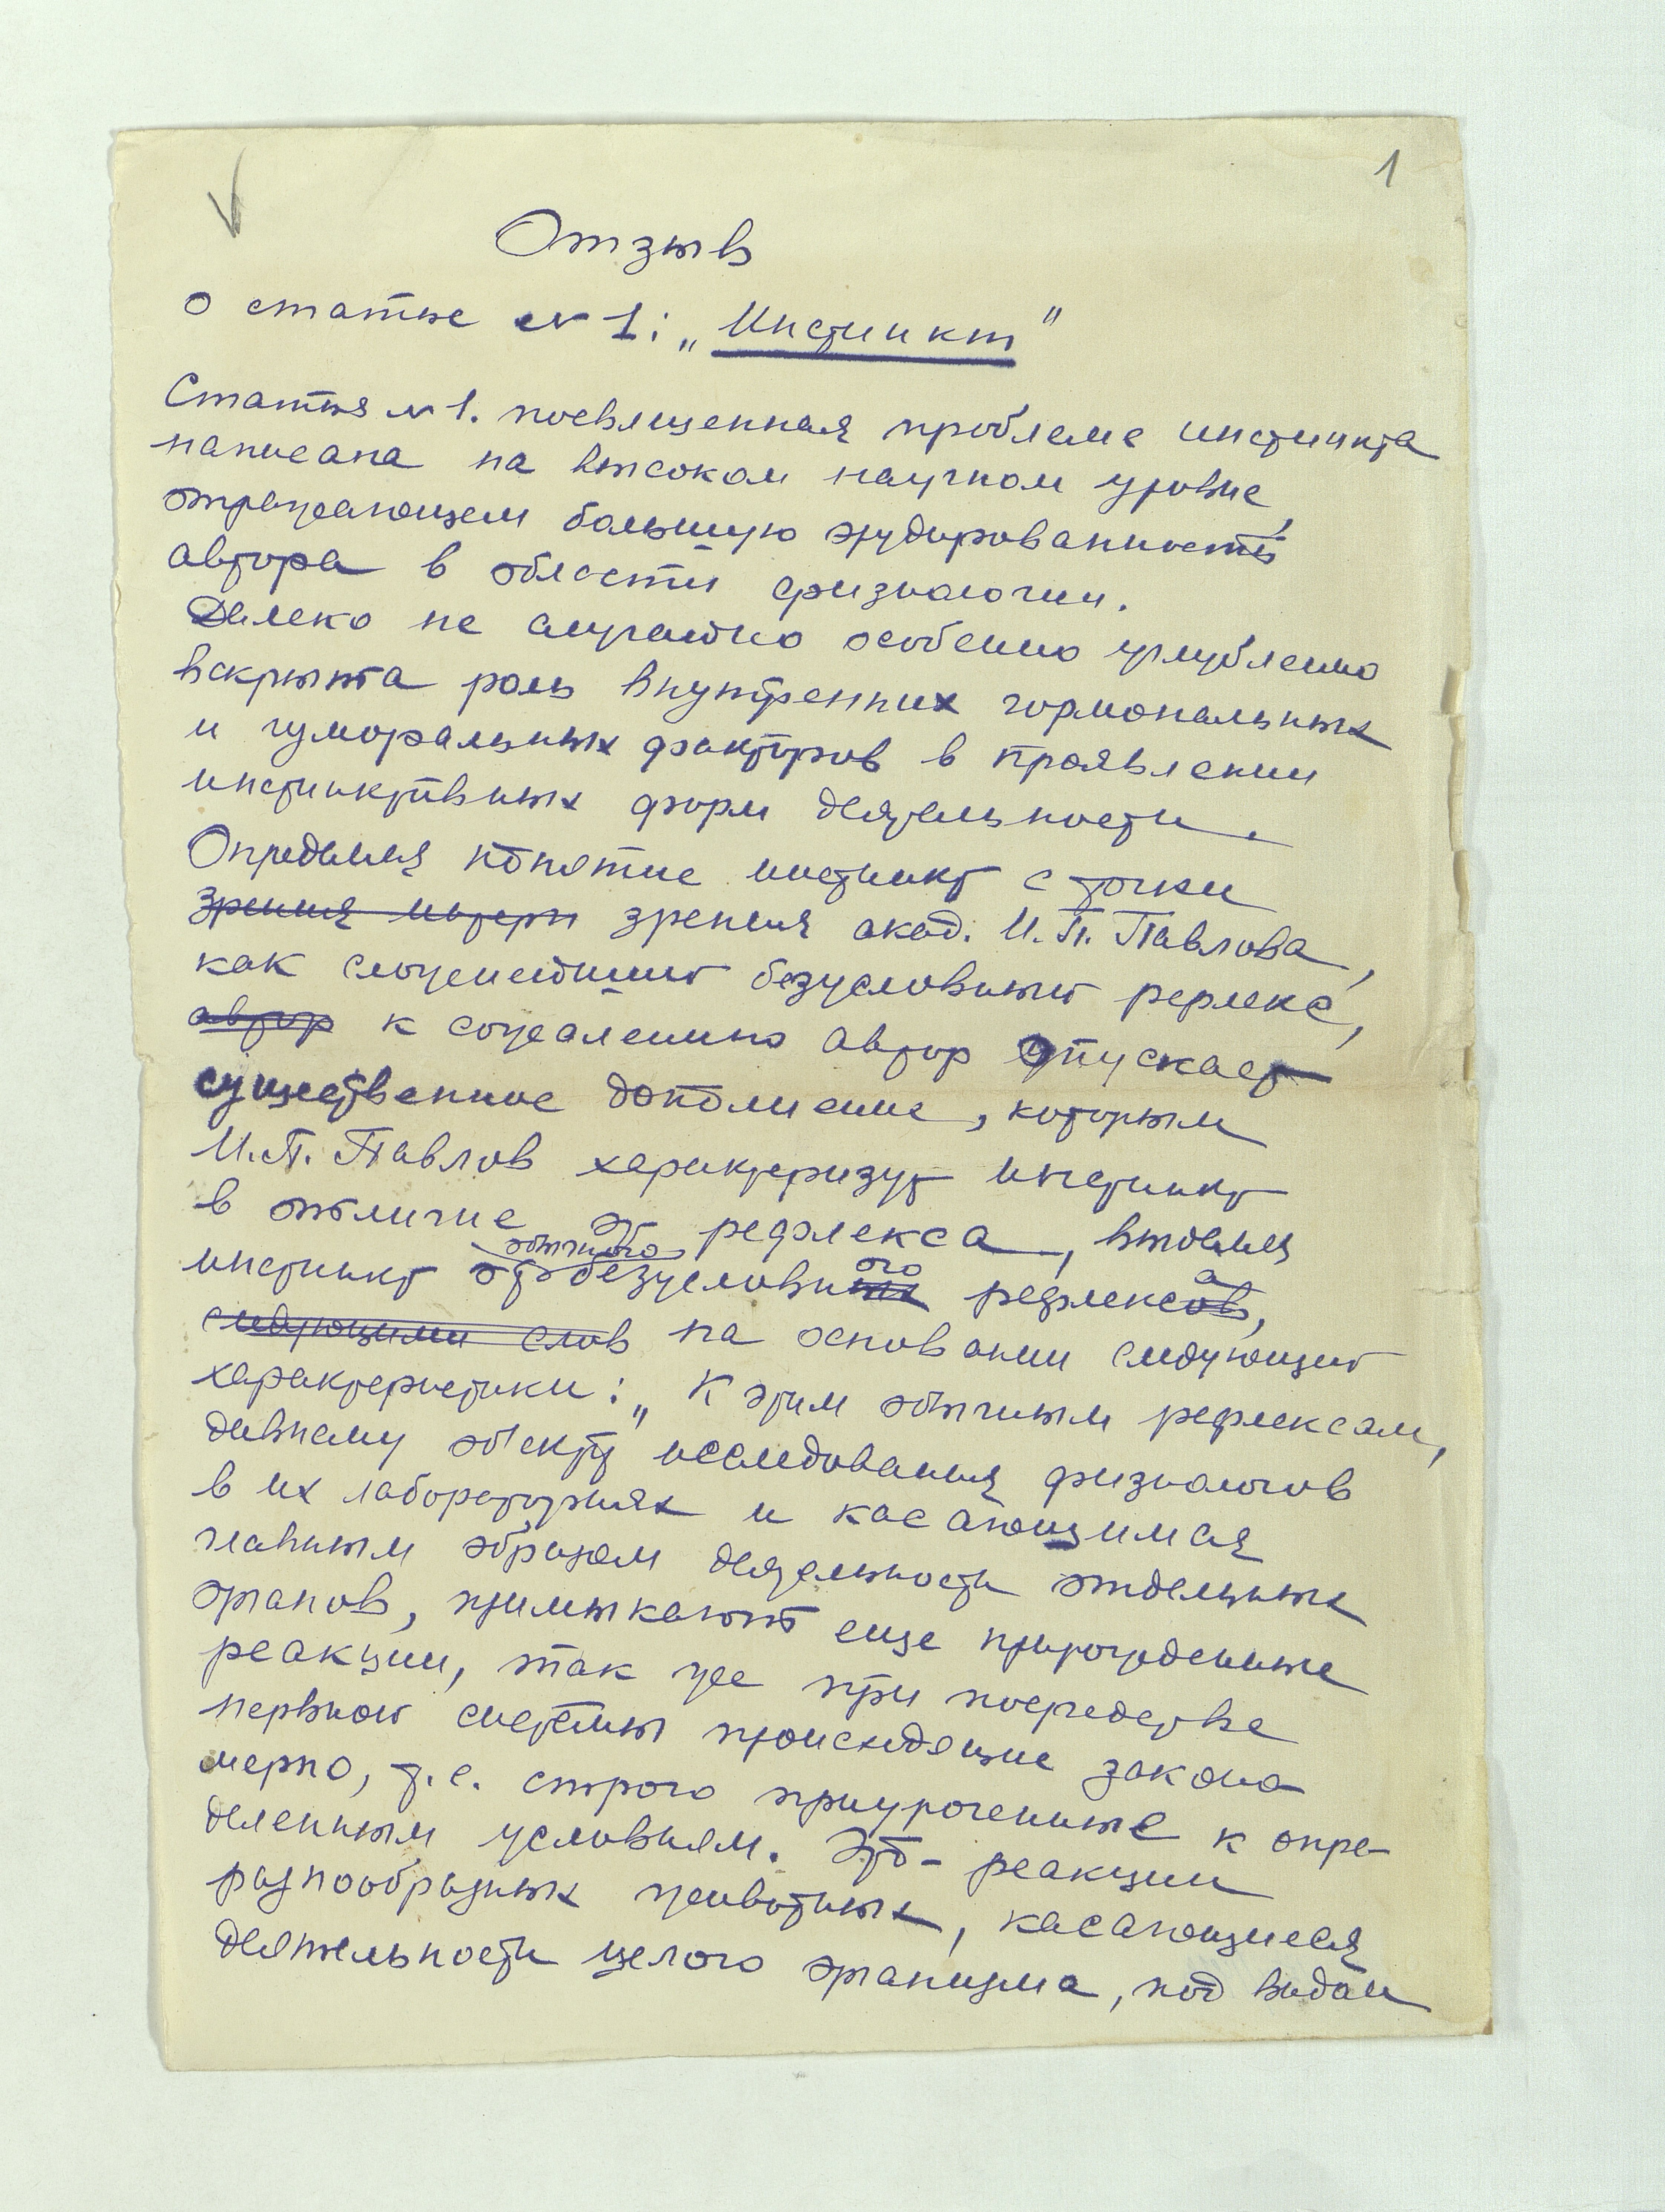 1
Отзыв
о статье № 1: „Инстинкт"
Статья № 1. посвященная проблеме инстинкта
написана на высоком научном уровне,
отражающем большую эрудированность
автора в области физиологии.
Далеко не случайно особенно углубленно
вскрыта роль внутренних гормональных
и гуморальных факторов в проявлении
инстинктивных форм деятельности.
Определяя понятие инстинкт с точки
зрения матери зрения акад. И.П. Павлова,
как сложнейший безусловный рефлекс,
автор к сожалению автор опускает
существенное дополнение, которым
И.П. Павлов характеризует инстинкт
в отличие от рефлекса, выделяя
обычного
инстинкт от безусловного рефлекса,
следующими слов на основании следующей
характеристики: „К этим обычным рефлексам,
давнему об'екту исследования физиологов
в их лабораториях и касающимся
главным образом деятельности отдельных
органов, примыкают еще прирожденные
реакции, так же при посредстве
нервной системы происходящие законо
мерно, т.е. строго приуроченные к опре-
деленным условиям. Это - реакции
разнообразных животных, касающиеся
деятельности целого организма, под видом